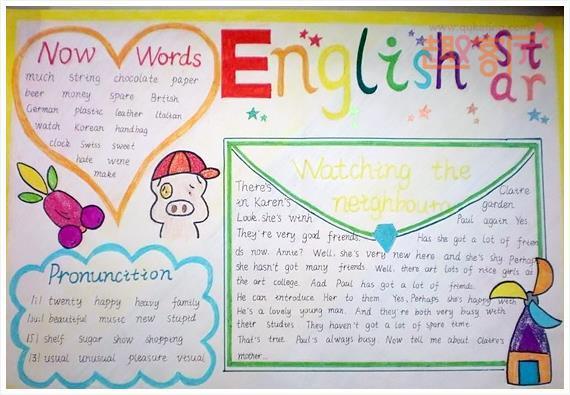 English St
ar
Now Words
much string chocolate paper
beer money spare British
German plastic leather Italian
watch Korean handbag
clock Swiss sweet
hate wine
make
Pronuncition
|i| twenty happy heavy family
|ju| beautiful music new stupid
|ʃ| shelf sugar show shopping
|ʒ| usual unusual pleasure visual
Watching the
neighbours
There's Claire
in Karen's garden
Look. she's with Paul again Yes.
They're very good friends. Has she got a lot of frien
ds now. Annie? Well. she's very new here and she's shy. Perhap
she hasn't got many friends. Well, there art lots of nice girls at
the art college. Aad Paul has got a lot of friends.
He can introduce Her to them. Yes, Perhaps she's happy with
He's a lovely young man. And they're both very busy with
their studies They haven't got a lot of spare time.
That's true. Paul's always busy. Now tell me about Claire's
mother...